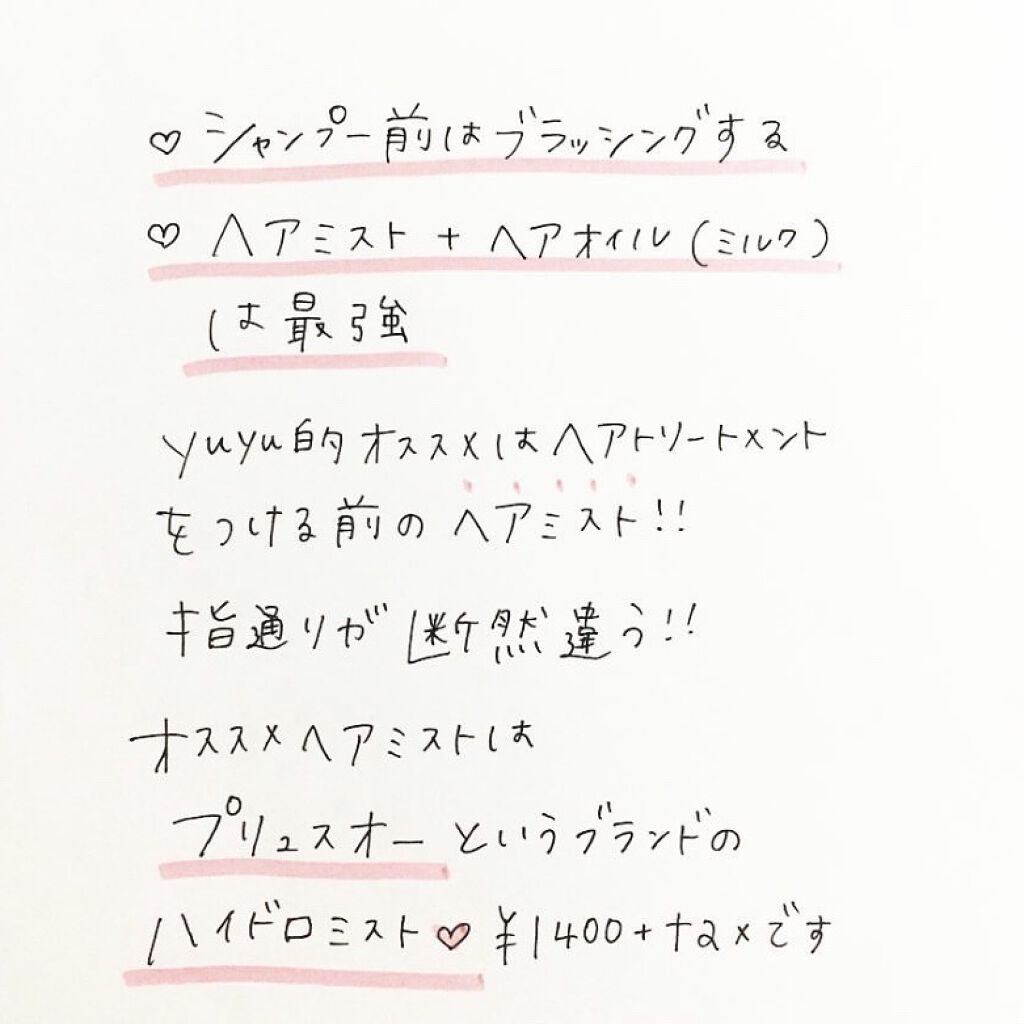 ♡ シャンプー前はブラッシングする
♡ ヘアミスト + ヘアオイル(ミルク)
は最強
yuyu的オススメはヘアトリートメント
をつける前のヘアミスト!!
指通りが断然違う!!
オススメヘアミストは
プリュスオーというブランドの
ハイドロミスト♡ ¥1400+taxです